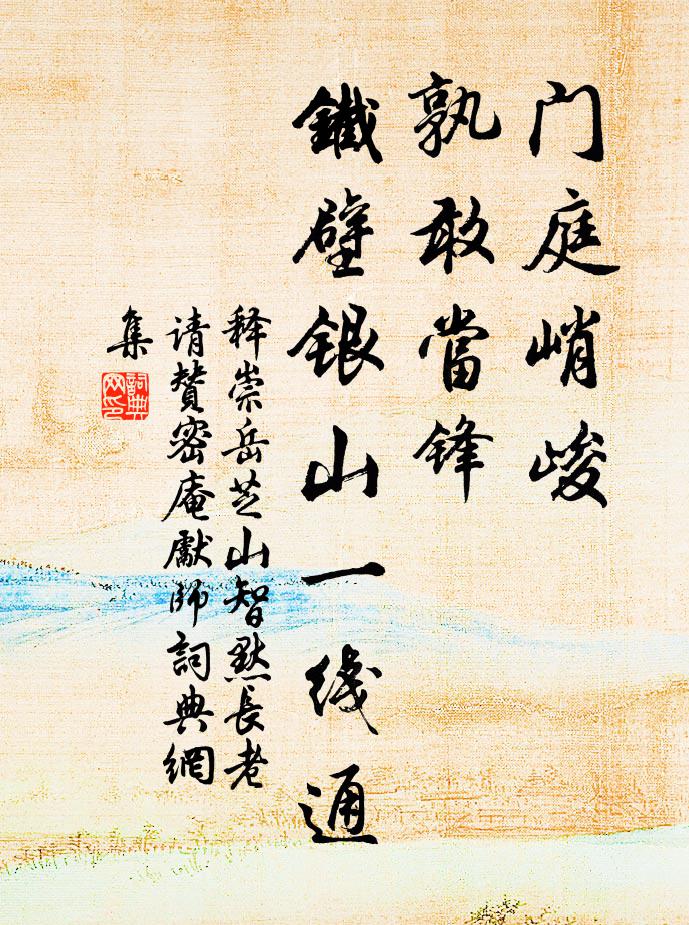 门庭峭峻
孰敢當锋
鐵壁银山一线通
释崇岳芝山智默長老
请赞密庵獻師詞典網
集
詞典
网印